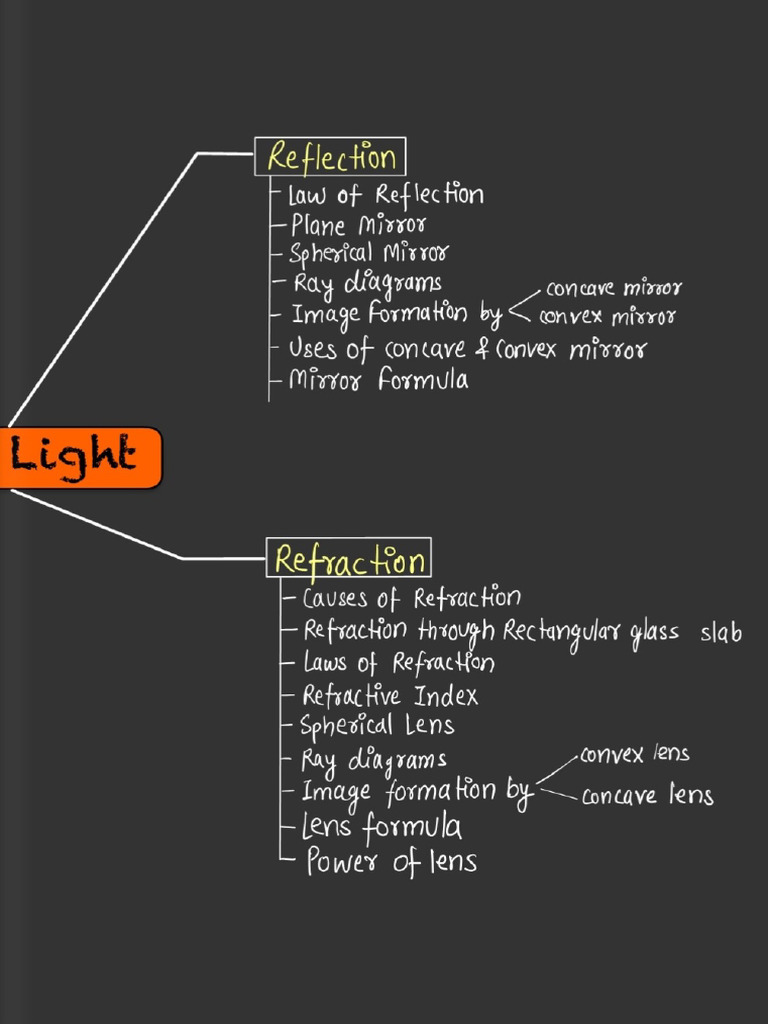 Reflection
Law of Reflection
Plane Mirror
Spherical Mirror
Ray diagrams
concave mirror
Image Formation by
convex mirror
Uses of concave & convex mirror
Mirror Formula
Light
Refraction
Causes of Refraction
Refraction through Rectangular glass slab
Laws of Refraction
Refractive Index
Spherical Lens
convex lens
Ray diagrams
Image formation by
concave lens
Lens formula
Power of lens